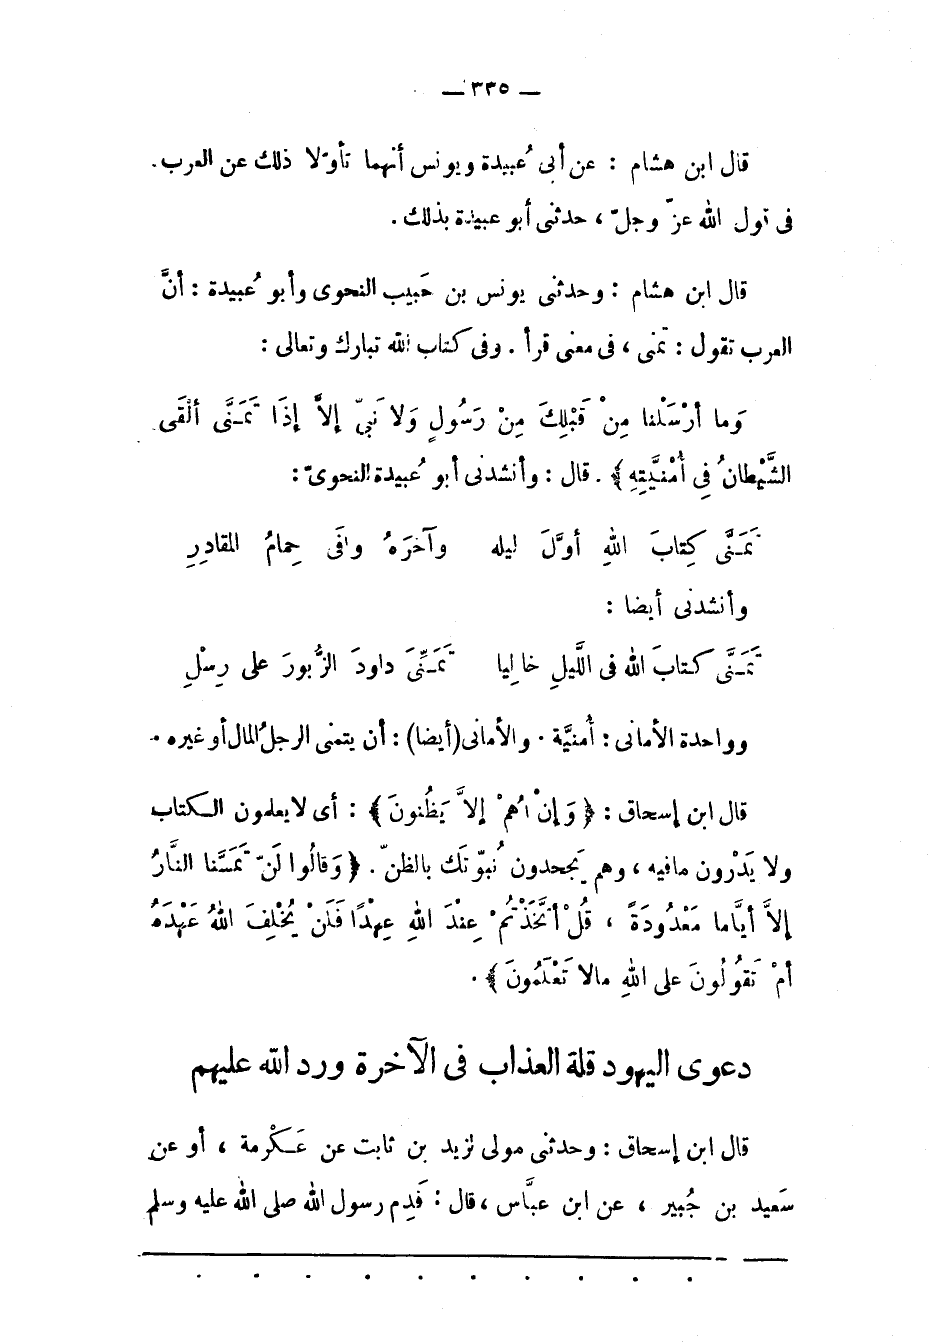 — ٣٣٥ —
قال ابن هشام : عن أبى عُبيدة ويونس أنهما تأوّلا ذلك عن العرب .
فى قول الله عزّ وجلّ ، حدثنى أبو عبيدة بذلك .
قال ابن هشام : وحدثنى يونس بن حَبيب النحوى وأبو عُبيدة : أنَّ
العرب تقول : تمنى ، فى معنى قرأ . وفى كتاب الله تبارك وتعالى :
وَما أرْسَلْنا مِنْ قَبْلِكَ مِنْ رَسُولٍ وَلا نَبىّ إلاَّ إذَا تَمَـنَّى ألْقَى
الشَّيْطانُ فِى أُمْنيَّتِهِ ﴾ . قال : وأنشدنى أبو عُبيدة النحوىّ :
تَمَـنَّى كِتابَ اللهِ أوَّلَ ليله وآخرَهُ وافَى حِمامُ المقادِرِ
وأنشدنى أيضا :
تَمَـنَّى كتابَ الله فى اللَّيلِ خالِيا تَمَـنِّىَ داودَ الزَّبورَ على رِسْلِ
وواحدة الأمانى : أُمنيَّة . والأمانى (أيضا) : أن يتمنى الرجلُ المال أو غيره .
قال ابن إسحاق : ﴿ وَإنْ هُمْ إلاَّ يَظُنونَ ﴾ : أى لا يعلمون الـكتاب
ولا يَدْرون مافيه ، وهم يَجحدون نُبوّتك بالظنّ . ﴿ وَقالُوا لَنّ تَمَسَّنا النَّارُ
إلاَّ أيَّاما مَعْدُودَةً ، قُلْ أتَّخَذْتُمْ عِنْدَ اللهِ عِهْدًا فَلَنْ يُخْلِفَ اللهُ عَهْدَهُ
أمْ تَقوُلُونَ على اللهِ مالا تَعْلَمُونَ ﴾ .
دعوى اليهود قلة العذاب فى الآخرة ورد الله عليهم
قال ابن إسحاق : وحدثنى مولى لزيد بن ثابت عن عَـكْرمة ، أو عن
سَعيد بن جُبير ، عن ابن عبَّاس ، قال : قَدِم رسول الله صلى الله عليه وسلم